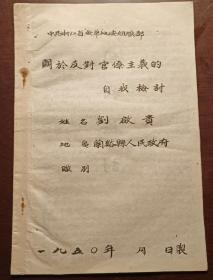 中共浙江省金華地委組織部
關於反對官僚主義的
自我檢討
姓名 劉啟貴
地區 蘭谿縣人民政府
職別
一九五〇年 月 日製